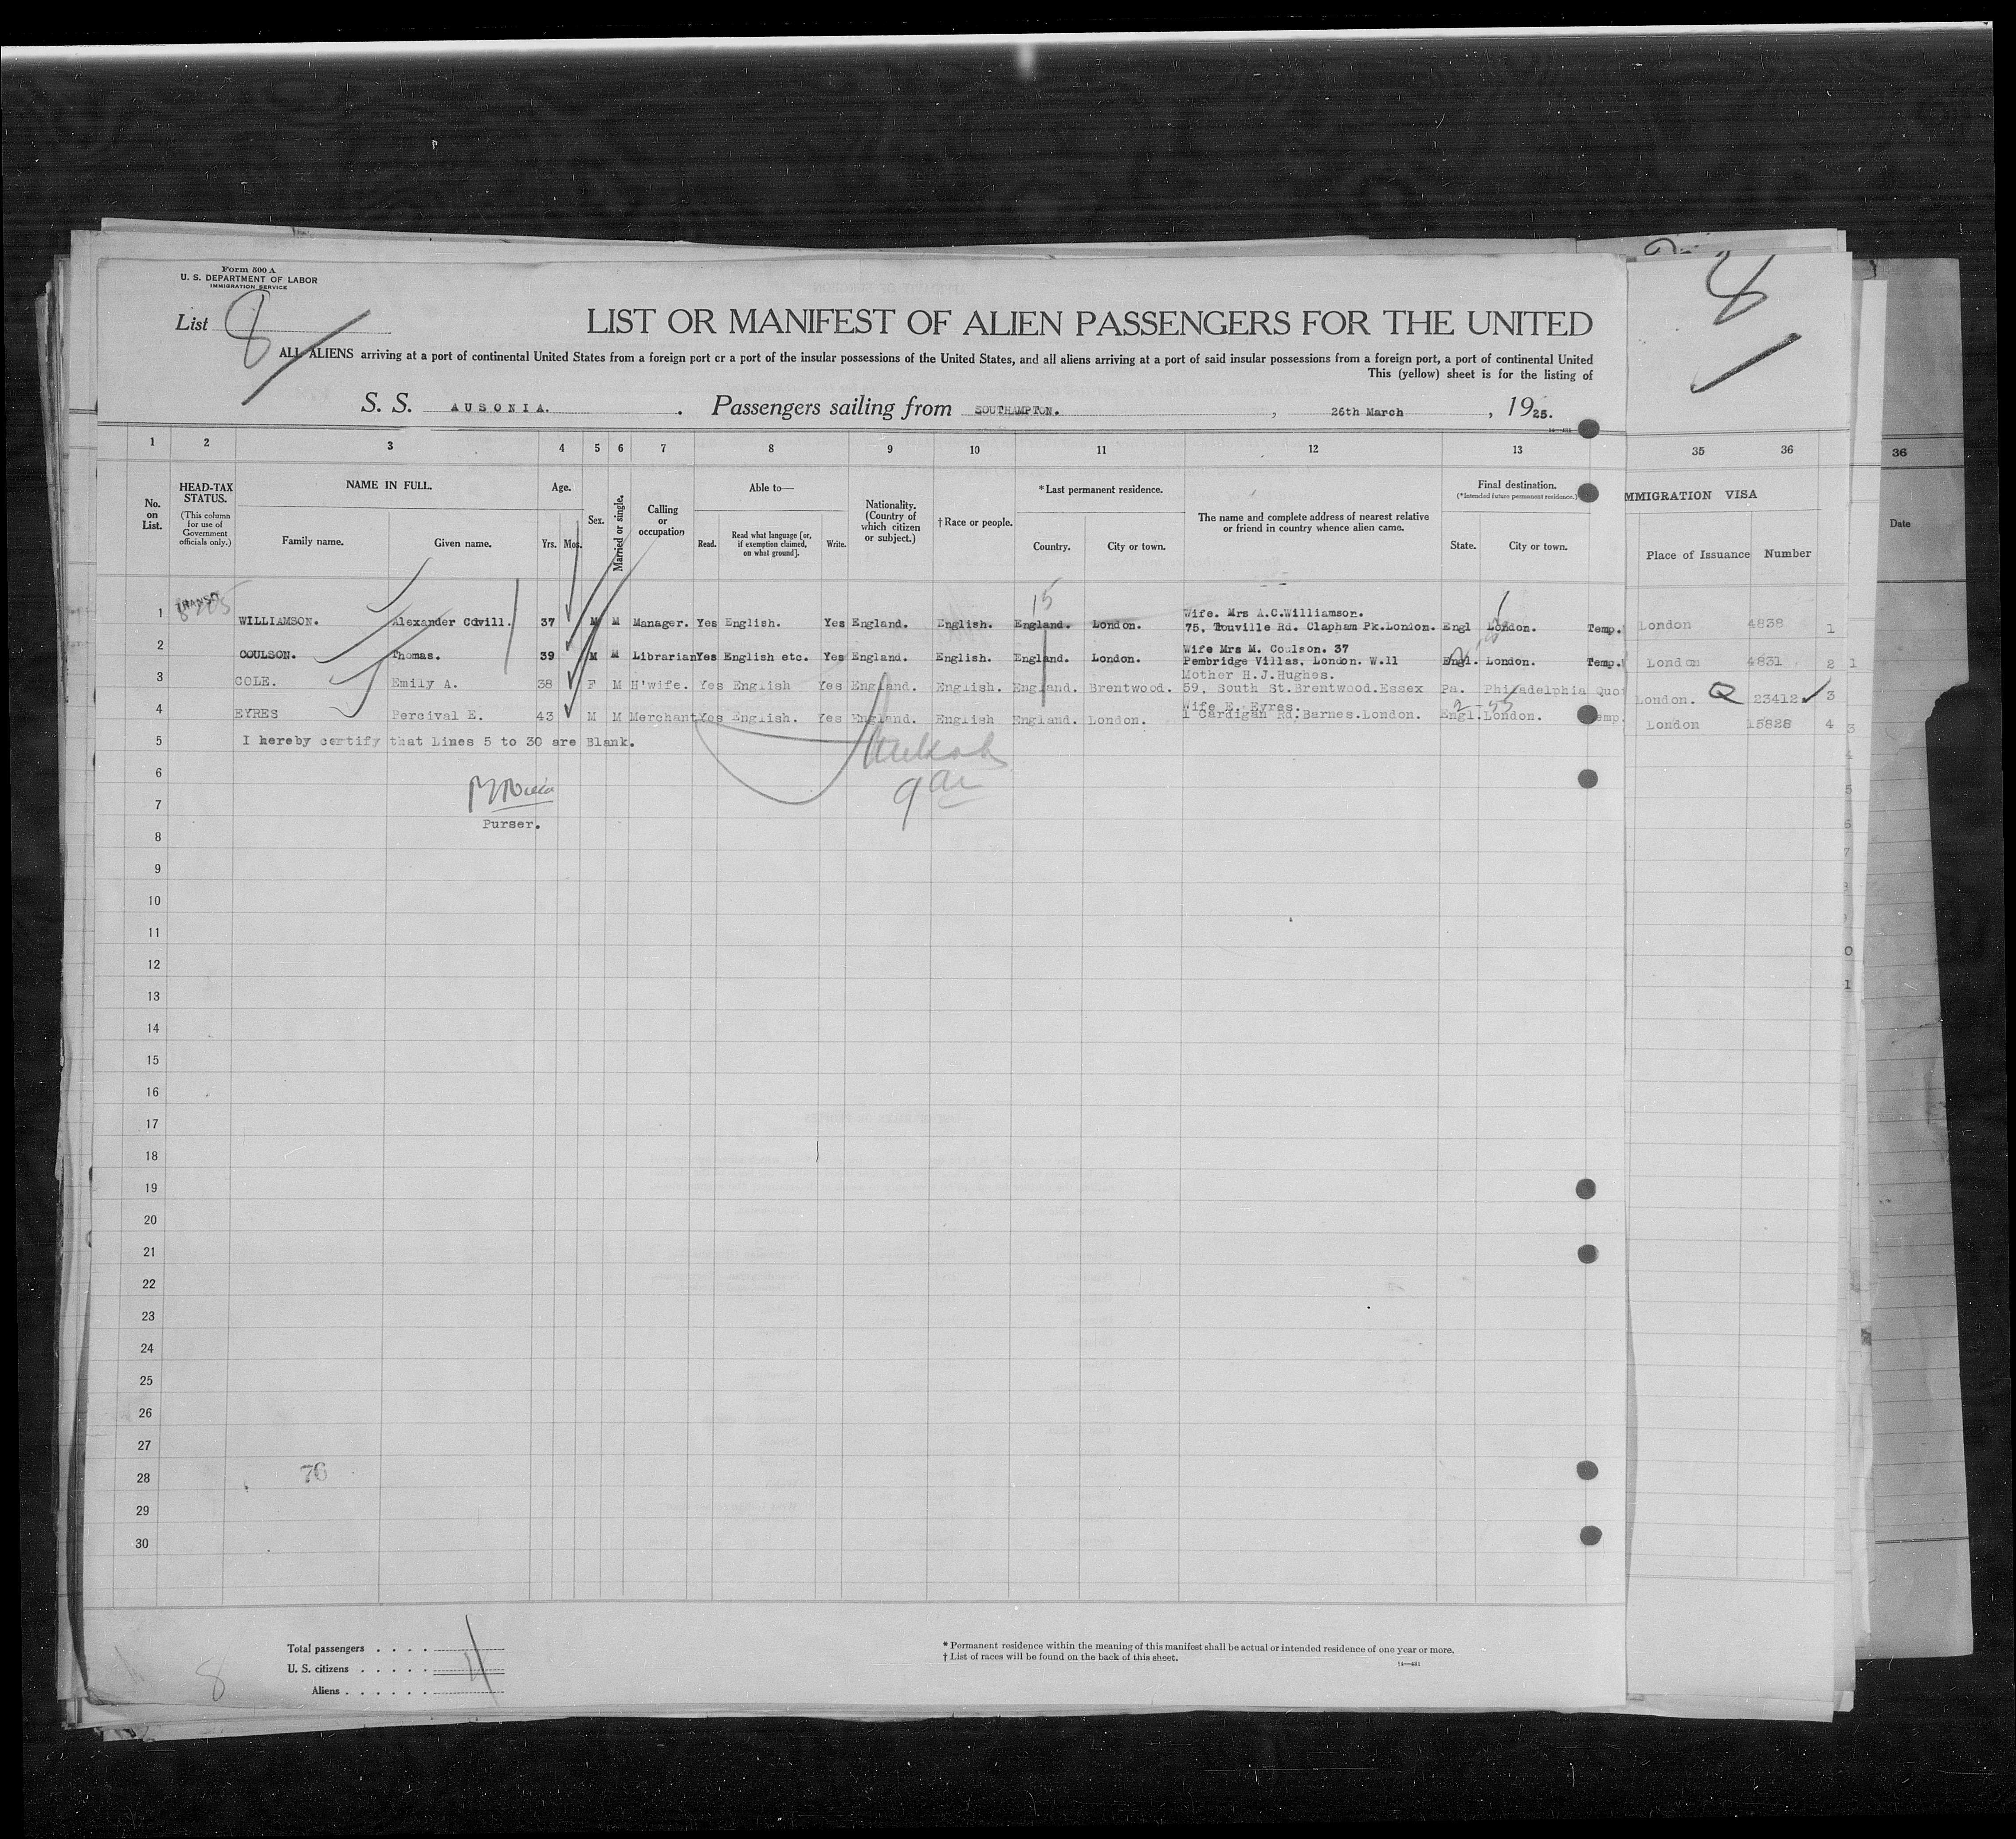 Form 500 A
U. S. DEPARTMENT OF LABOR
IMMIGRATION SERVICE
List 8
8
LIST OR MANIFEST OF ALIEN PASSENGERS FOR THE UNITED
ALL ALIENS arriving at a port of continental United States from a foreign port or a port of the insular possessions of the United States, and all aliens arriving at a port of said insular possessions from a foreign port, a port of continental United
This (yellow) sheet is for the listing of
S. S. AUSONIA. Passengers sailing from SOUTHAMPTON. , 26th March , 1925.
1 2 3 4 5 6 7 8 9 10 11 12 13 35 36
36
No. on List.
HEAD-TAX STATUS.
(This column for use of Government officials only.)
NAME IN FULL.
Family name. Given name.
Age.
Yrs. Mos.
Sex.
Married or single.
Calling or occupation
Able to—
Read. Read what language [or, if exemption claimed, on what ground]. Write.
Nationality. (Country of which citizen or subject.)
† Race or people.
* Last permanent residence.
Country. City or town.
The name and complete address of nearest relative or friend in country whence alien came.
Final destination.
(* Intended future permanent residence.)
State. City or town.
MMIGRATION VISA
Place of Issuance Number
Date
TRANSIT
15
Wife. Mrs A.C.Williamson.
1 WILLIAMSON. Alexander Covill. 37 M M Manager. Yes English. Yes England. English. England. London. 75, Touville Rd. Clapham Pk.London. Engl London. Temp. London 4838 1
Wife Mrs M. Coulson. 37
2 COULSON. Thomas. 39 M M Librarian Yes English etc. Yes England. English. England. London. Pembridge Villas, London. W.11 Engl. London. Temp. London 4831 2 1
Mother H.J.Hughes.
3 COLE. Emily A. 38 F M H'wife. Yes English Yes England. English. England. Brentwood. 59, South St.Brentwood.Essex Pa. Philadelphia Quo London. Q 23412 3
Wife E. Eyres.
4 EYRES Percival E. 43 M M Merchant Yes English. Yes England. English England. London. 1 Cardigan Rd.Barnes.London. Engl. London. Temp. London 15828 4 3
5 I hereby certify that Lines 5 to 30 are Blank.
6
7
Purser.
8
9
10
11
12
13
14
15
16
17
18
19
20
21
22
23
24
25
26
27
28 76
29
30
Total passengers
U. S. citizens
Aliens
8
* Permanent residence within the meaning of this manifest shall be actual or intended residence of one year or more.
† List of races will be found on the back of this sheet.